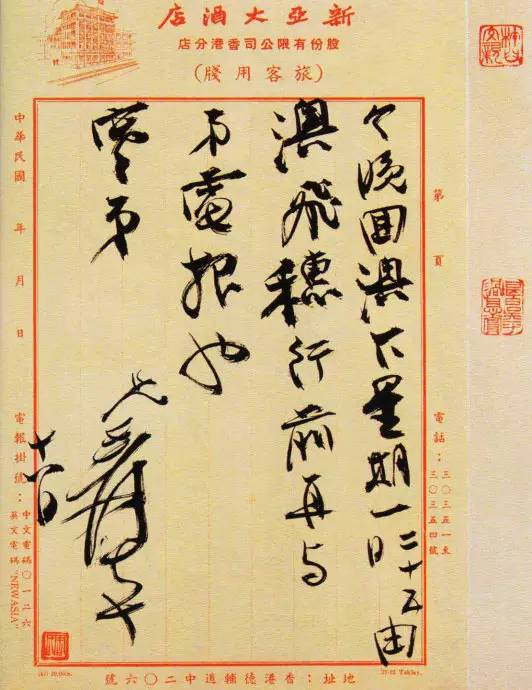 新亞大酒店
股份有限公司香港分店
(旅客用牋)
第 頁
電話：三〇三五一至
三〇三五四號
今晚回澳下星期一日二十五由
澳飛穗行前再与
弟電報也
弟
兄爰
中華民國 年 月 日
電報掛號：中文電碼〇一二六
英文電碼"NEWASIA"
地址：香港德輔道中二〇六號